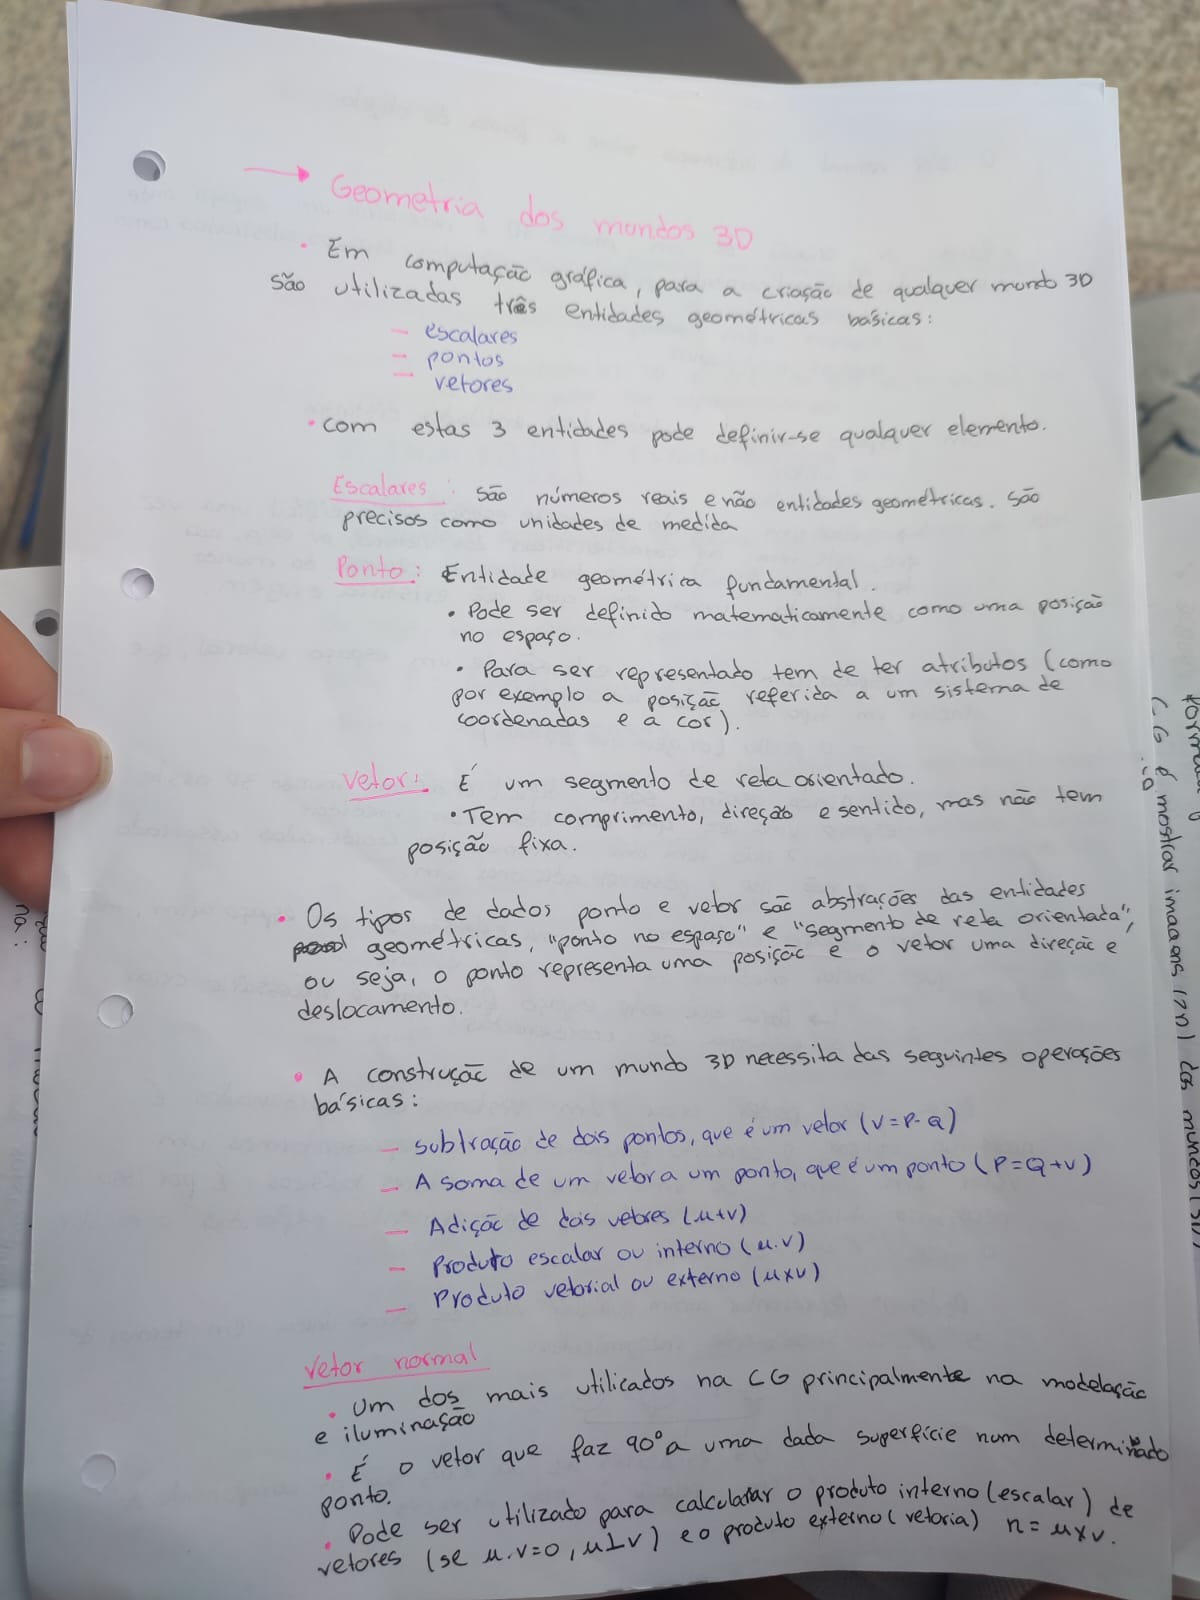 → Geometria dos mundos 3D
• Em computação gráfica, para a criação de qualquer mundo 3D
são utilizadas três entidades geométricas básicas:
– escalares
– pontos
– vetores
• com estas 3 entidades pode definir-se qualquer elemento.
Escalares: são números reais e não entidades geométricas. são
precisos como unidades de medida
Ponto: Entidade geométrica fundamental.
• Pode ser definido matematicamente como uma posição
no espaço.
• Para ser representado tem de ter atributos (como
por exemplo a posição referida a um sistema de
coordenadas e a cor).
Vetor: É um segmento de reta orientado.
• Tem comprimento, direção e sentido, mas não tem
posição fixa.
• Os tipos de dados ponto e vetor são abstrações das entidades
geométricas, "ponto no espaço" e "segmento de reta orientada",
ou seja, o ponto representa uma posição e o vetor uma direção e
deslocamento.
• A construção de um mundo 3D necessita das seguintes operações
básicas:
– subtração de dois pontos, que é um vetor (v=P-Q)
– A soma de um vetor a um ponto, que é um ponto (P=Q+v)
– Adição de dois vetores (μ+v)
– Produto escalar ou interno (μ.v)
– Produto vetorial ou externo (μxv)
Vetor normal
• Um dos mais utilizados na CG principalmente na modelação
e iluminação
• É o vetor que faz 90° a uma dada superfície num determinado
ponto.
• Pode ser utilizado para calcular o produto interno (escalar) de
vetores (se μ.v=0, μ⊥v) e o produto externo (vetoria) n = μxv.
CG é mostrar imagens (2D) dos mundos (3D)
na: